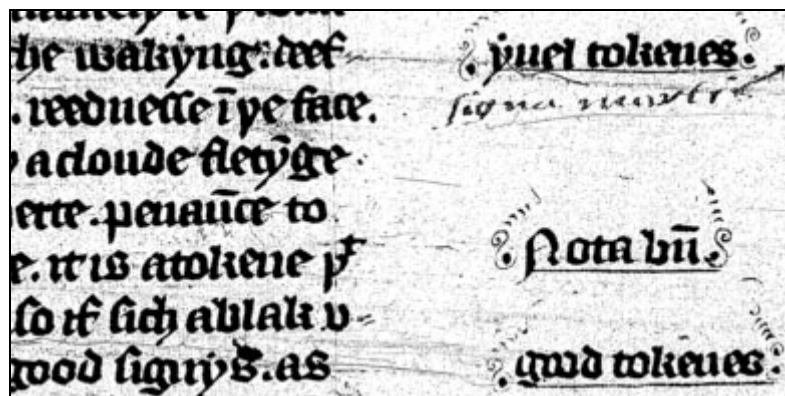 he wakyng. deef-
. reednesse ī þe face.
a cloude fletyȳge
erte. penaūce to
e. it is a tokene þt
so if sich a blak v=
good signys. as
yuel tokenes.
signa
Nota bn̄.
good tokenes: